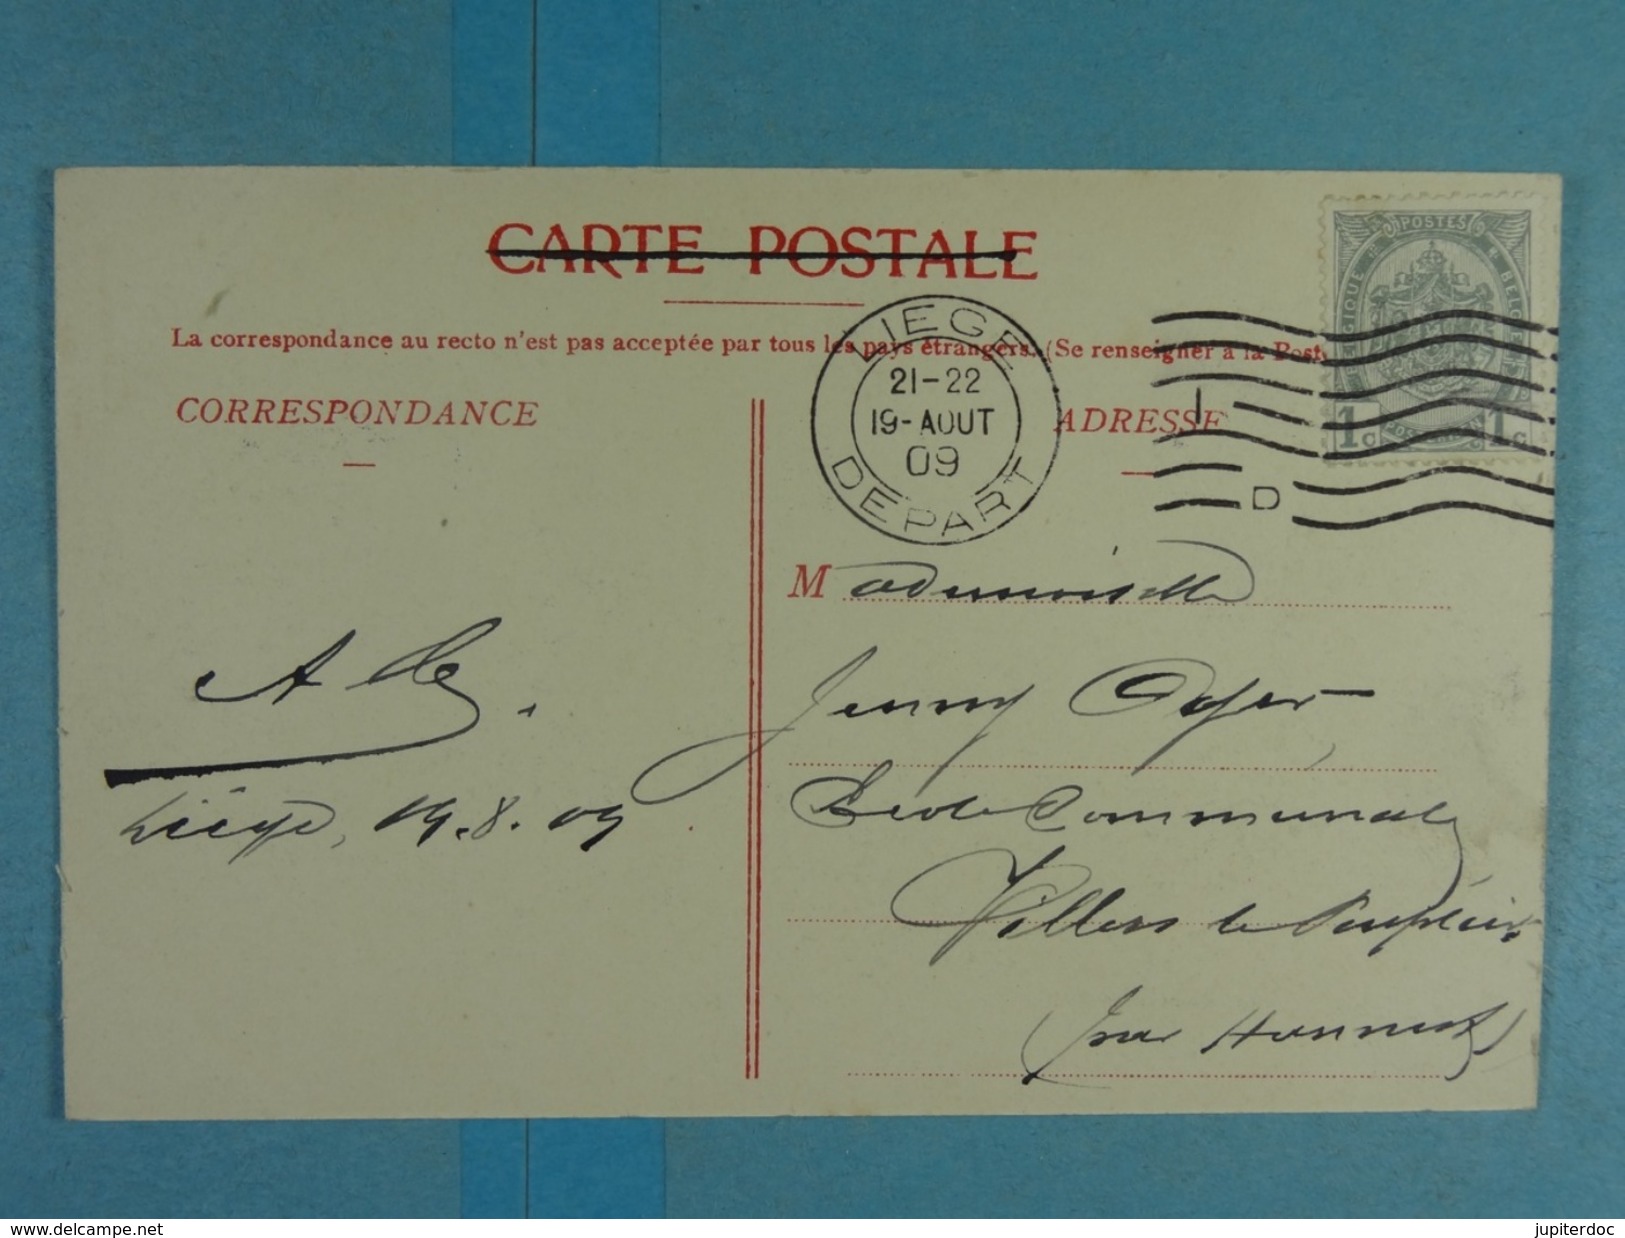 CARTE POSTALE
La correspondance au recto n'est pas acceptée par tous les pays étrangers. (Se renseigner à la Poste
CORRESPONDANCE
ADRESSE
LIEGE
21-22
19-AOUT
09
DEPART
I
D
POSTES
BELGIQUE
1c 1c
Mademoiselle
Jenny
Ecole Communale
Villers le Peuplier
(par Hannut)
Liège, 19.8.09
delcampe.net
jupiterdoc